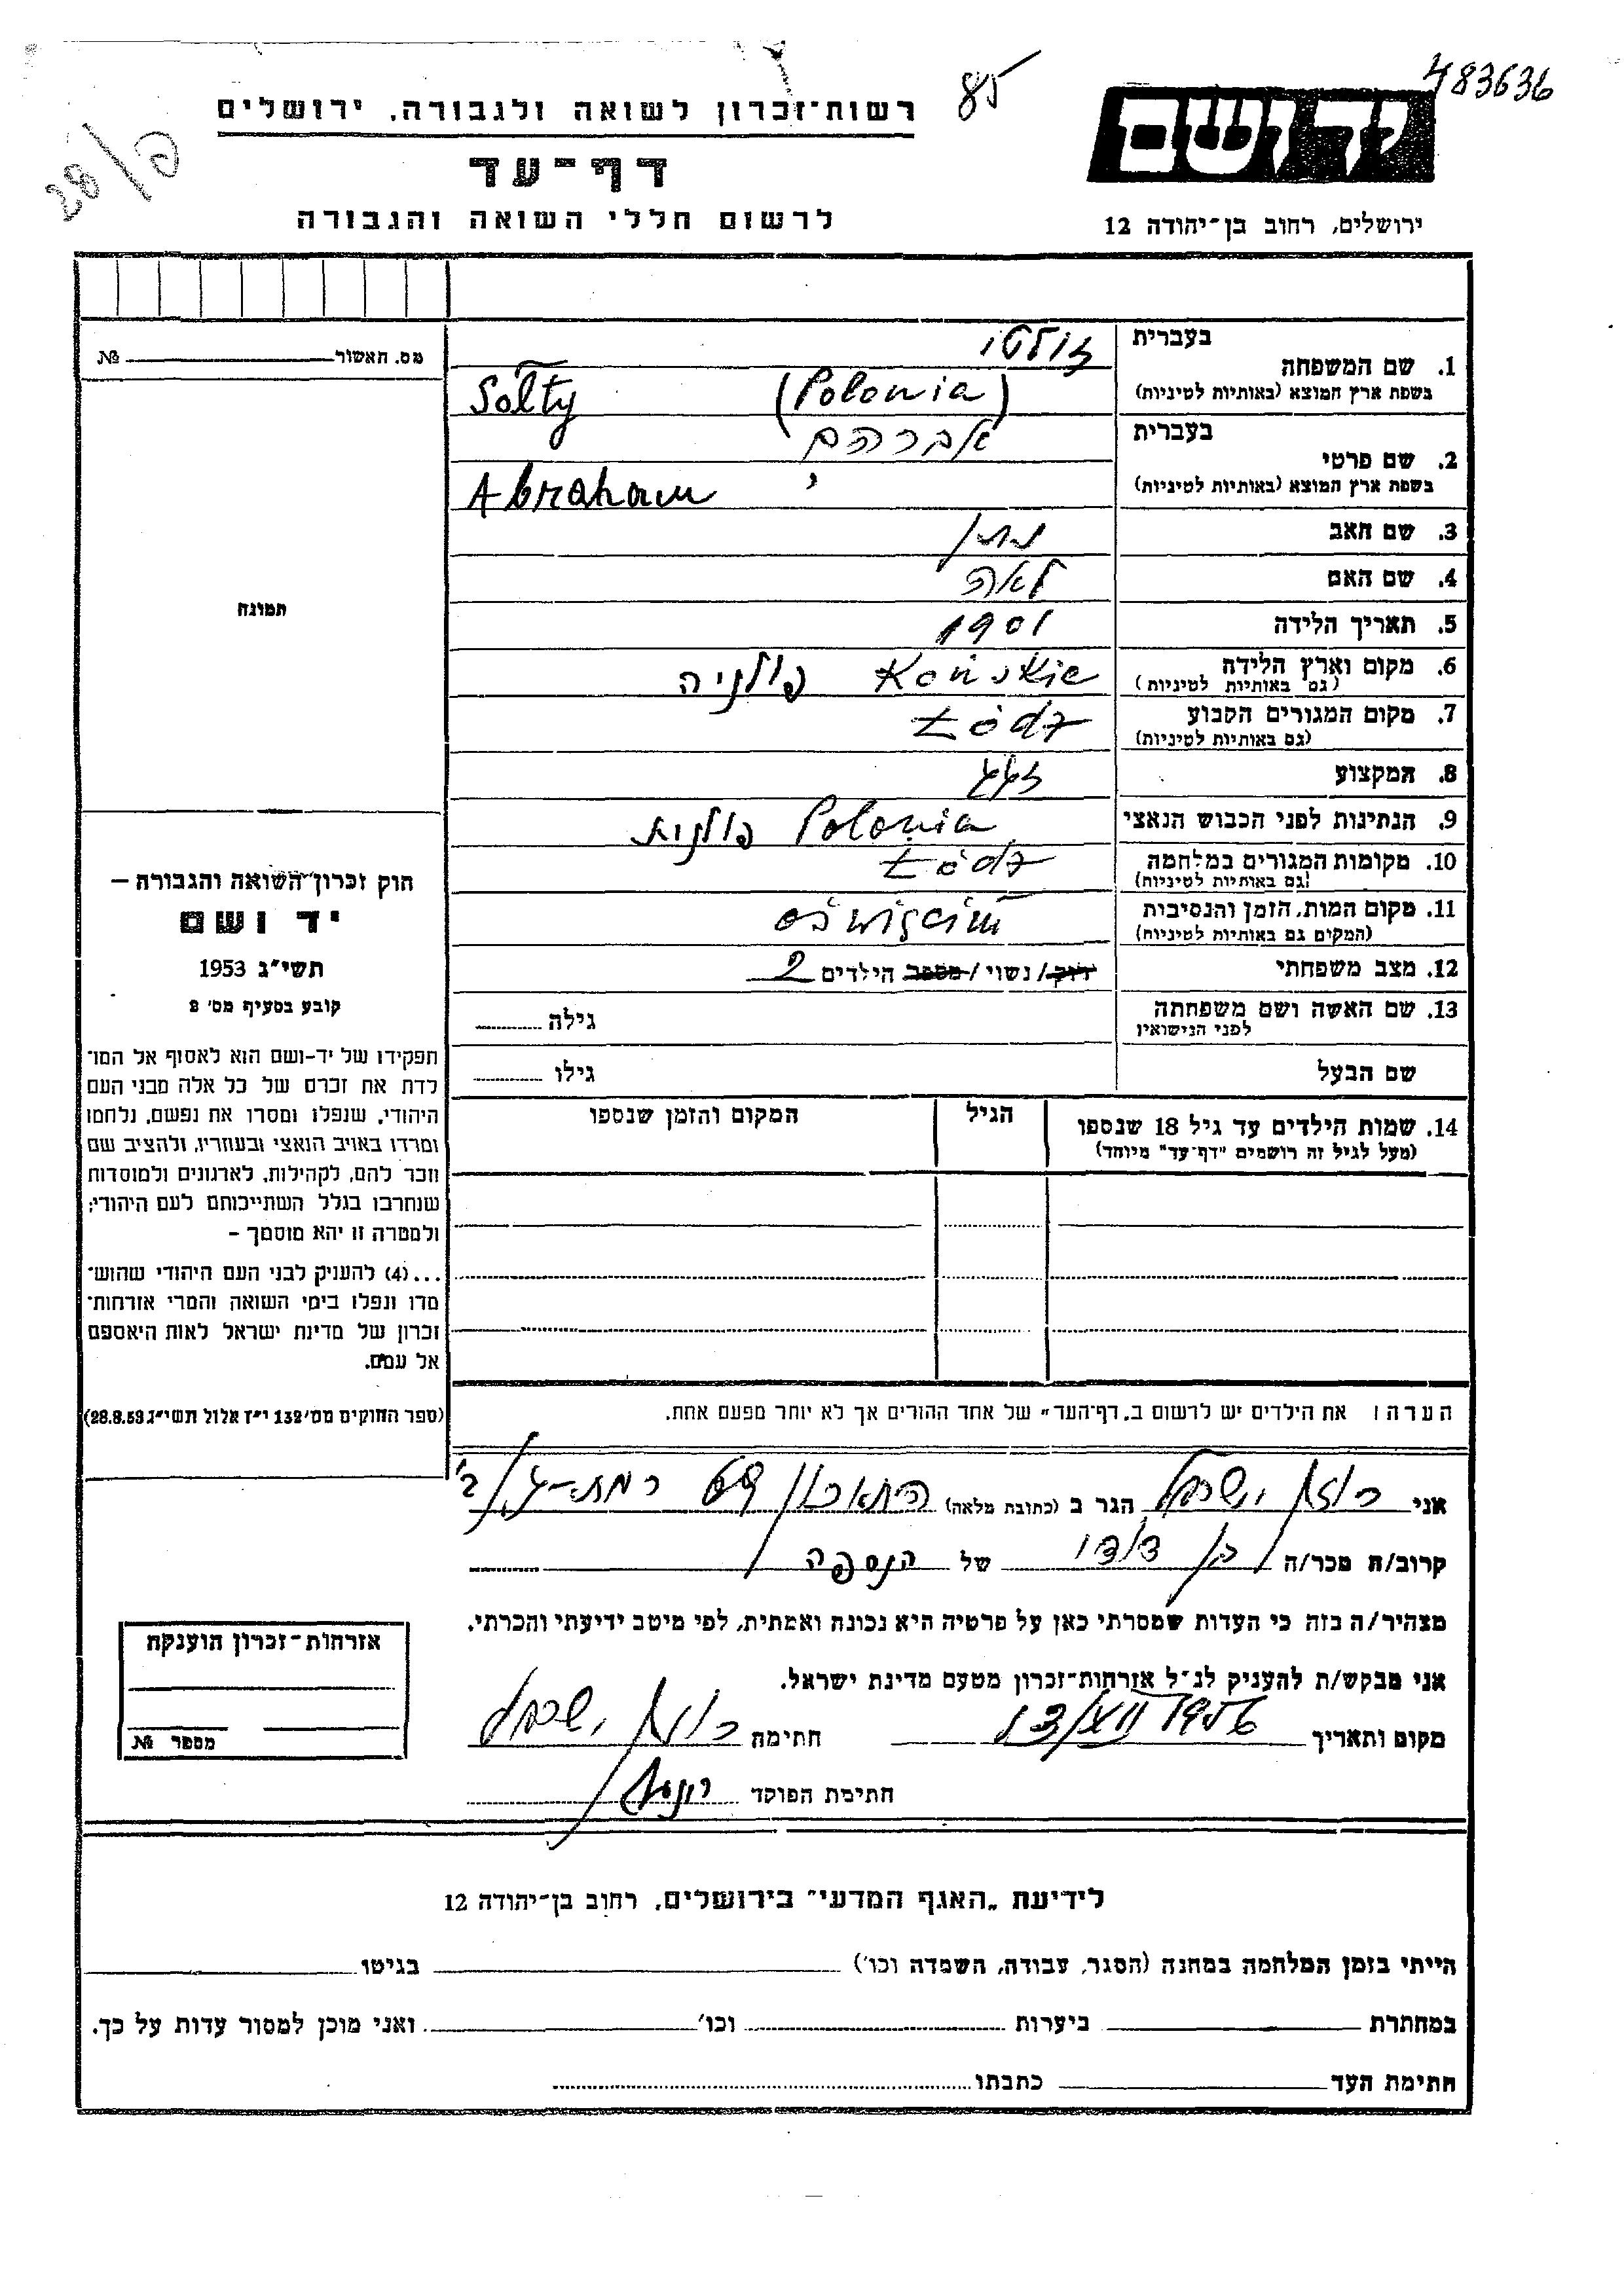 483636
85
28/פ
ידושם
ירושלים, רחוב בן־יהודה 12
רשות־זכרון לשואה ולגבורה, ירושלים
דף־עד
לרשום חללי השואה והגבורה
מס. תאשור № 
תמונה
בעברית
1. שם המשפחה זולטי
בשפת ארץ המוצא (באותיות לטיניות) (Polonia) Sołty
בעברית
2. שם פרטי אברהם
בשפת ארץ המוצא (באותיות לטיניות) Abraham
3. שם האב נתן
4. שם האם לאה
5. תאריך הלידה 1901
6. מקום וארץ הלידה Końskie פולניה
(גם באותיות לטיניות)
7. מקום המגורים הקבוע Łódz
(גם באותיות לטיניות)
8. המקצוע
9. הנתינות לפני הכבוש הנאצי Polonia פולנית
10. מקומות המגורים במלחמה Łódz
(גם באותיות לטיניות)
11. מקום המות, הזמן והנסיבות
(המקום גם באותיות לטיניות)
12. מצב משפחתי רוק/נשוי/מספר הילדים 2
13. שם האשה ושם משפחתה גילה
לפני הנישואין
שם הבעל גילו
14. שמות הילדים עד גיל 18 שנספו הגיל המקום והזמן שנספו
(מעל לגיל זה רושמים "דף־עד" מיוחד)
חוק זכרון־השואה והגבורה –
יד ושם
תשי"ג 1953
קובע בסעיף מס' 2
תפקידו של יד-ושם הוא לאסוף אל המו־
לדת את זכרם של כל אלה מבני העם
היהודי, שנפלו ומסרו את נפשם, נלחמו
ומרדו באויב הנאצי ובעוזריו, ולהציב שם
וזכר להם, לקהילות, לארגונים ולמוסדות
שנחרבו בגלל השתייכותם לעם היהודי;
ולמטרה זו יהא מוסמך –
...(4) להעניק לבני העם היהודי שהוש־
מדו ונפלו בימי השואה והמרי אזרחות־
זכרון של מדינת ישראל לאות היאספם
אל עמם.
(ספר החוקים מס' 132 י"ז אלול תשי"ג 28.8.53)
הערה: את הילדים יש לרשום ב„דף־העד" של אחד ההורים אך לא יותר מפעם אחת.
אני רוזן ישראל הגר ב (כתובת מלאה) רמת-גן
קרוב/ה מכר/ה בן דודו של הנספה
מצהיר/ה בזה כי העדות שמסרתי כאן על פרטיה היא נכונה ואמתית, לפי מיטב ידיעתי והכרתי.
אני מבקש/ת להעניק לנ"ל אזרחות־זכרון מטעם מדינת ישראל.
מקום ותאריך 1956 חתימה רוזן ישראל
חתימת הפוקד
אזרחות־זכרון הוענקה
מספר №
לידיעת „האגף המדעי" בירושלים, רחוב בן־יהודה 12
הייתי בזמן המלחמה במחנה (הסגר, עבודה, השמדה וכו') בגיטו
במחתרת ביערות וכו' ואני מוכן למסור עדות על כך.
חתימת העד כתבתו